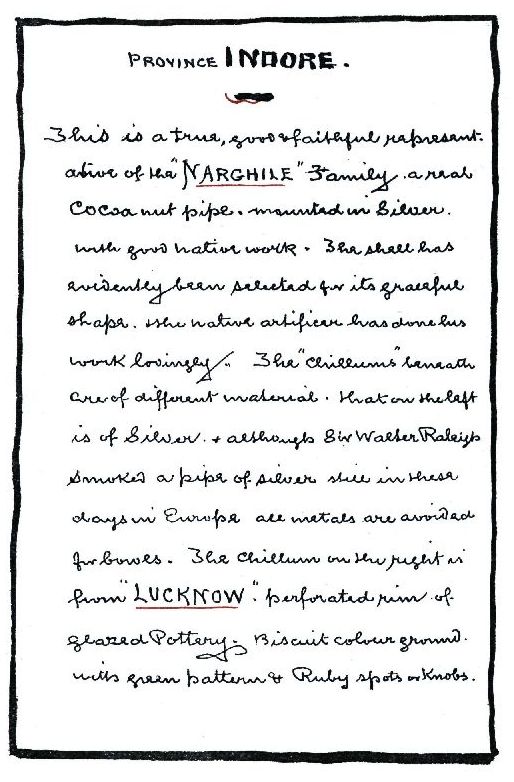 PROVINCE INDORE.
This is a true, good & faithful represent-
ative of the "NARGHILE" Family. a real
Cocoa nut pipe. mounted in Silver.
with good native work. The shell has
evidently been selected for its graceful
shape. & the native artificer has done his
work lovingly. The "Chillums" beneath
are of different material. that on the left
is of Silver. & although Sir Walter Raleigh
smoked a pipe of silver still in these
days in Europe all metals are avoided
for bowls. The Chillum on the right is
from "LUCKNOW". perforated rim of
glazed Pottery. Biscuit colour ground.
with green pattern & Ruby spots or Knobs.